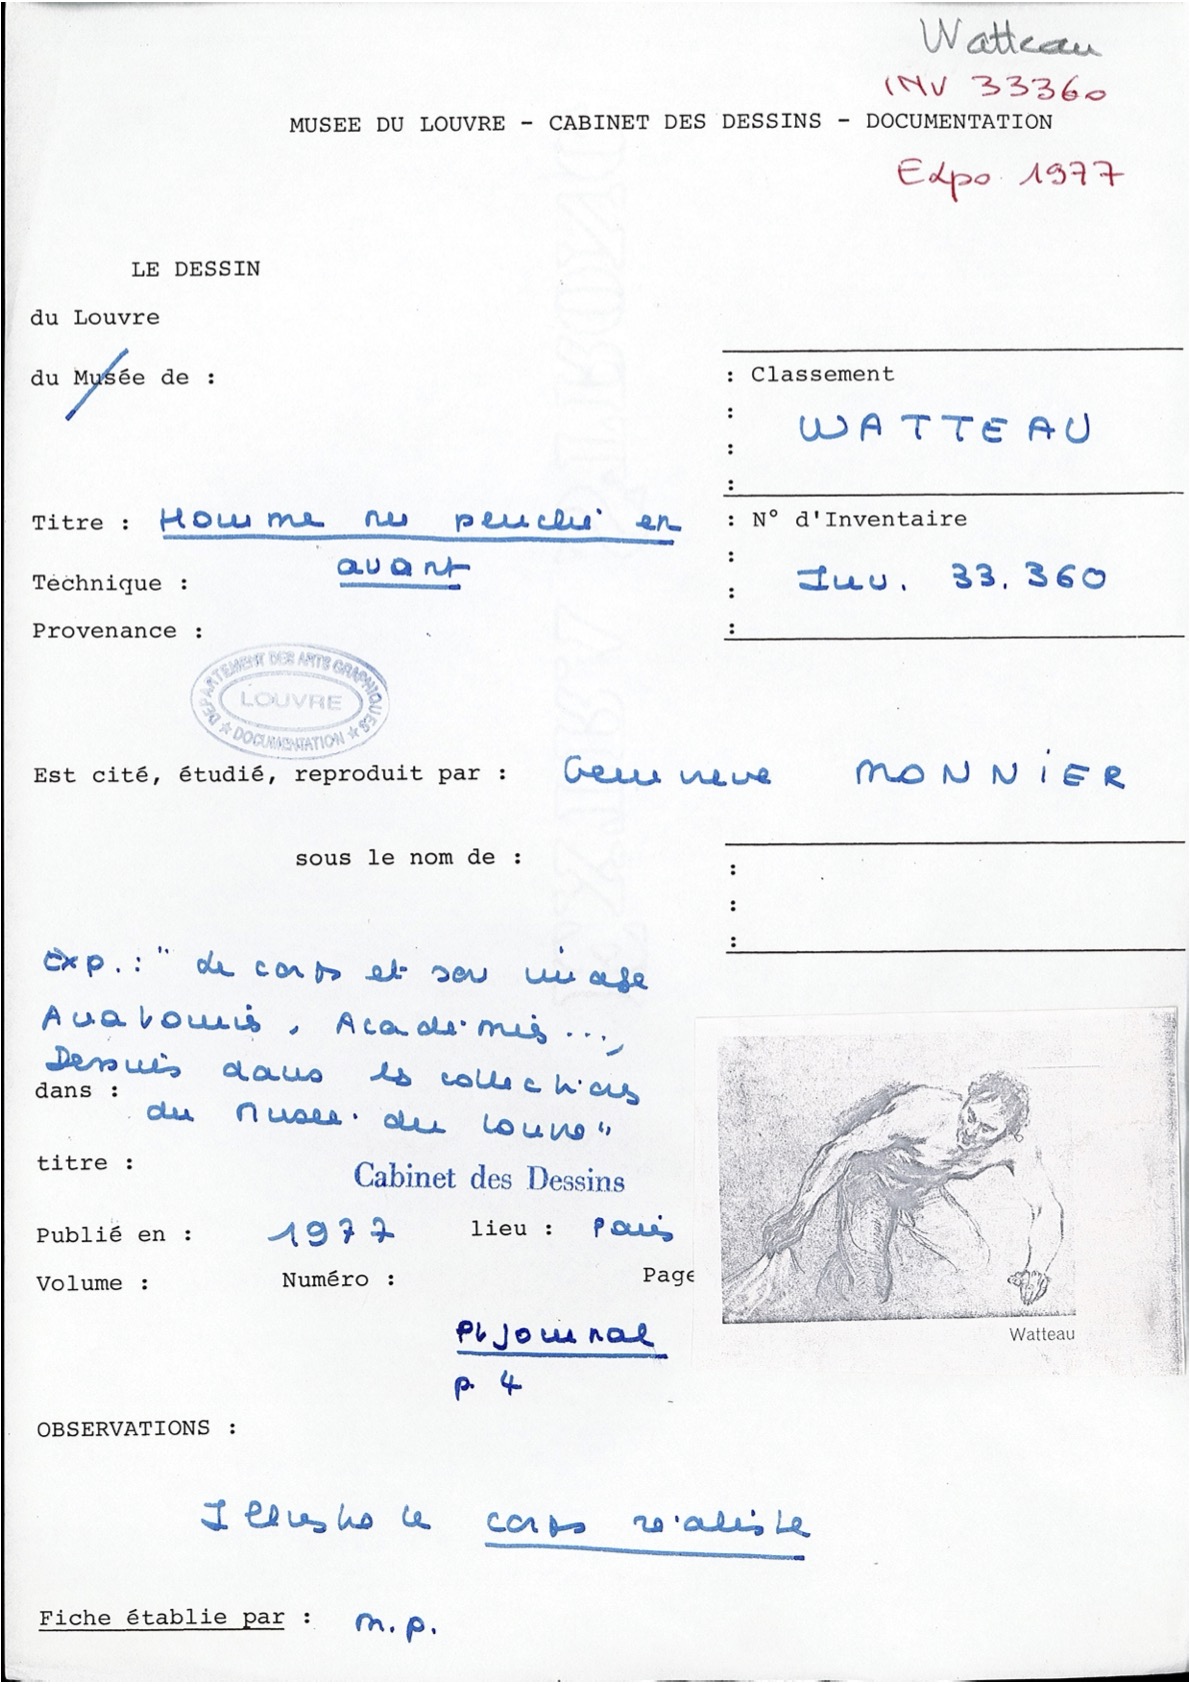 Watteau
INV 33360
MUSEE DU LOUVRE - CABINET DES DESSINS - DOCUMENTATION
Expo 1977
LE DESSIN
du Louvre
du Musée de :
: Classement
WATTEAU
Titre : Homme nu penché en
avant
: N° d'Inventaire
Inv. 33.360
Technique :
Provenance :
DEPARTEMENT DES ARTS GRAPHIQUES
LOUVRE
DOCUMENTATION
Est cité, étudié, reproduit par : Genevieve MONNIER
sous le nom de :
Exp. : " Le corps et son image
Anatomies, Académies ...,
Dessins dans les collections
dans :
du Musée du Louvre"
titre :
Cabinet des Dessins
Publié en : 1977 lieu : Paris
Volume : Numéro : Page
Pt Journal
p. 4
Watteau
OBSERVATIONS :
Illustre le corps réaliste
Fiche établie par : m.p.